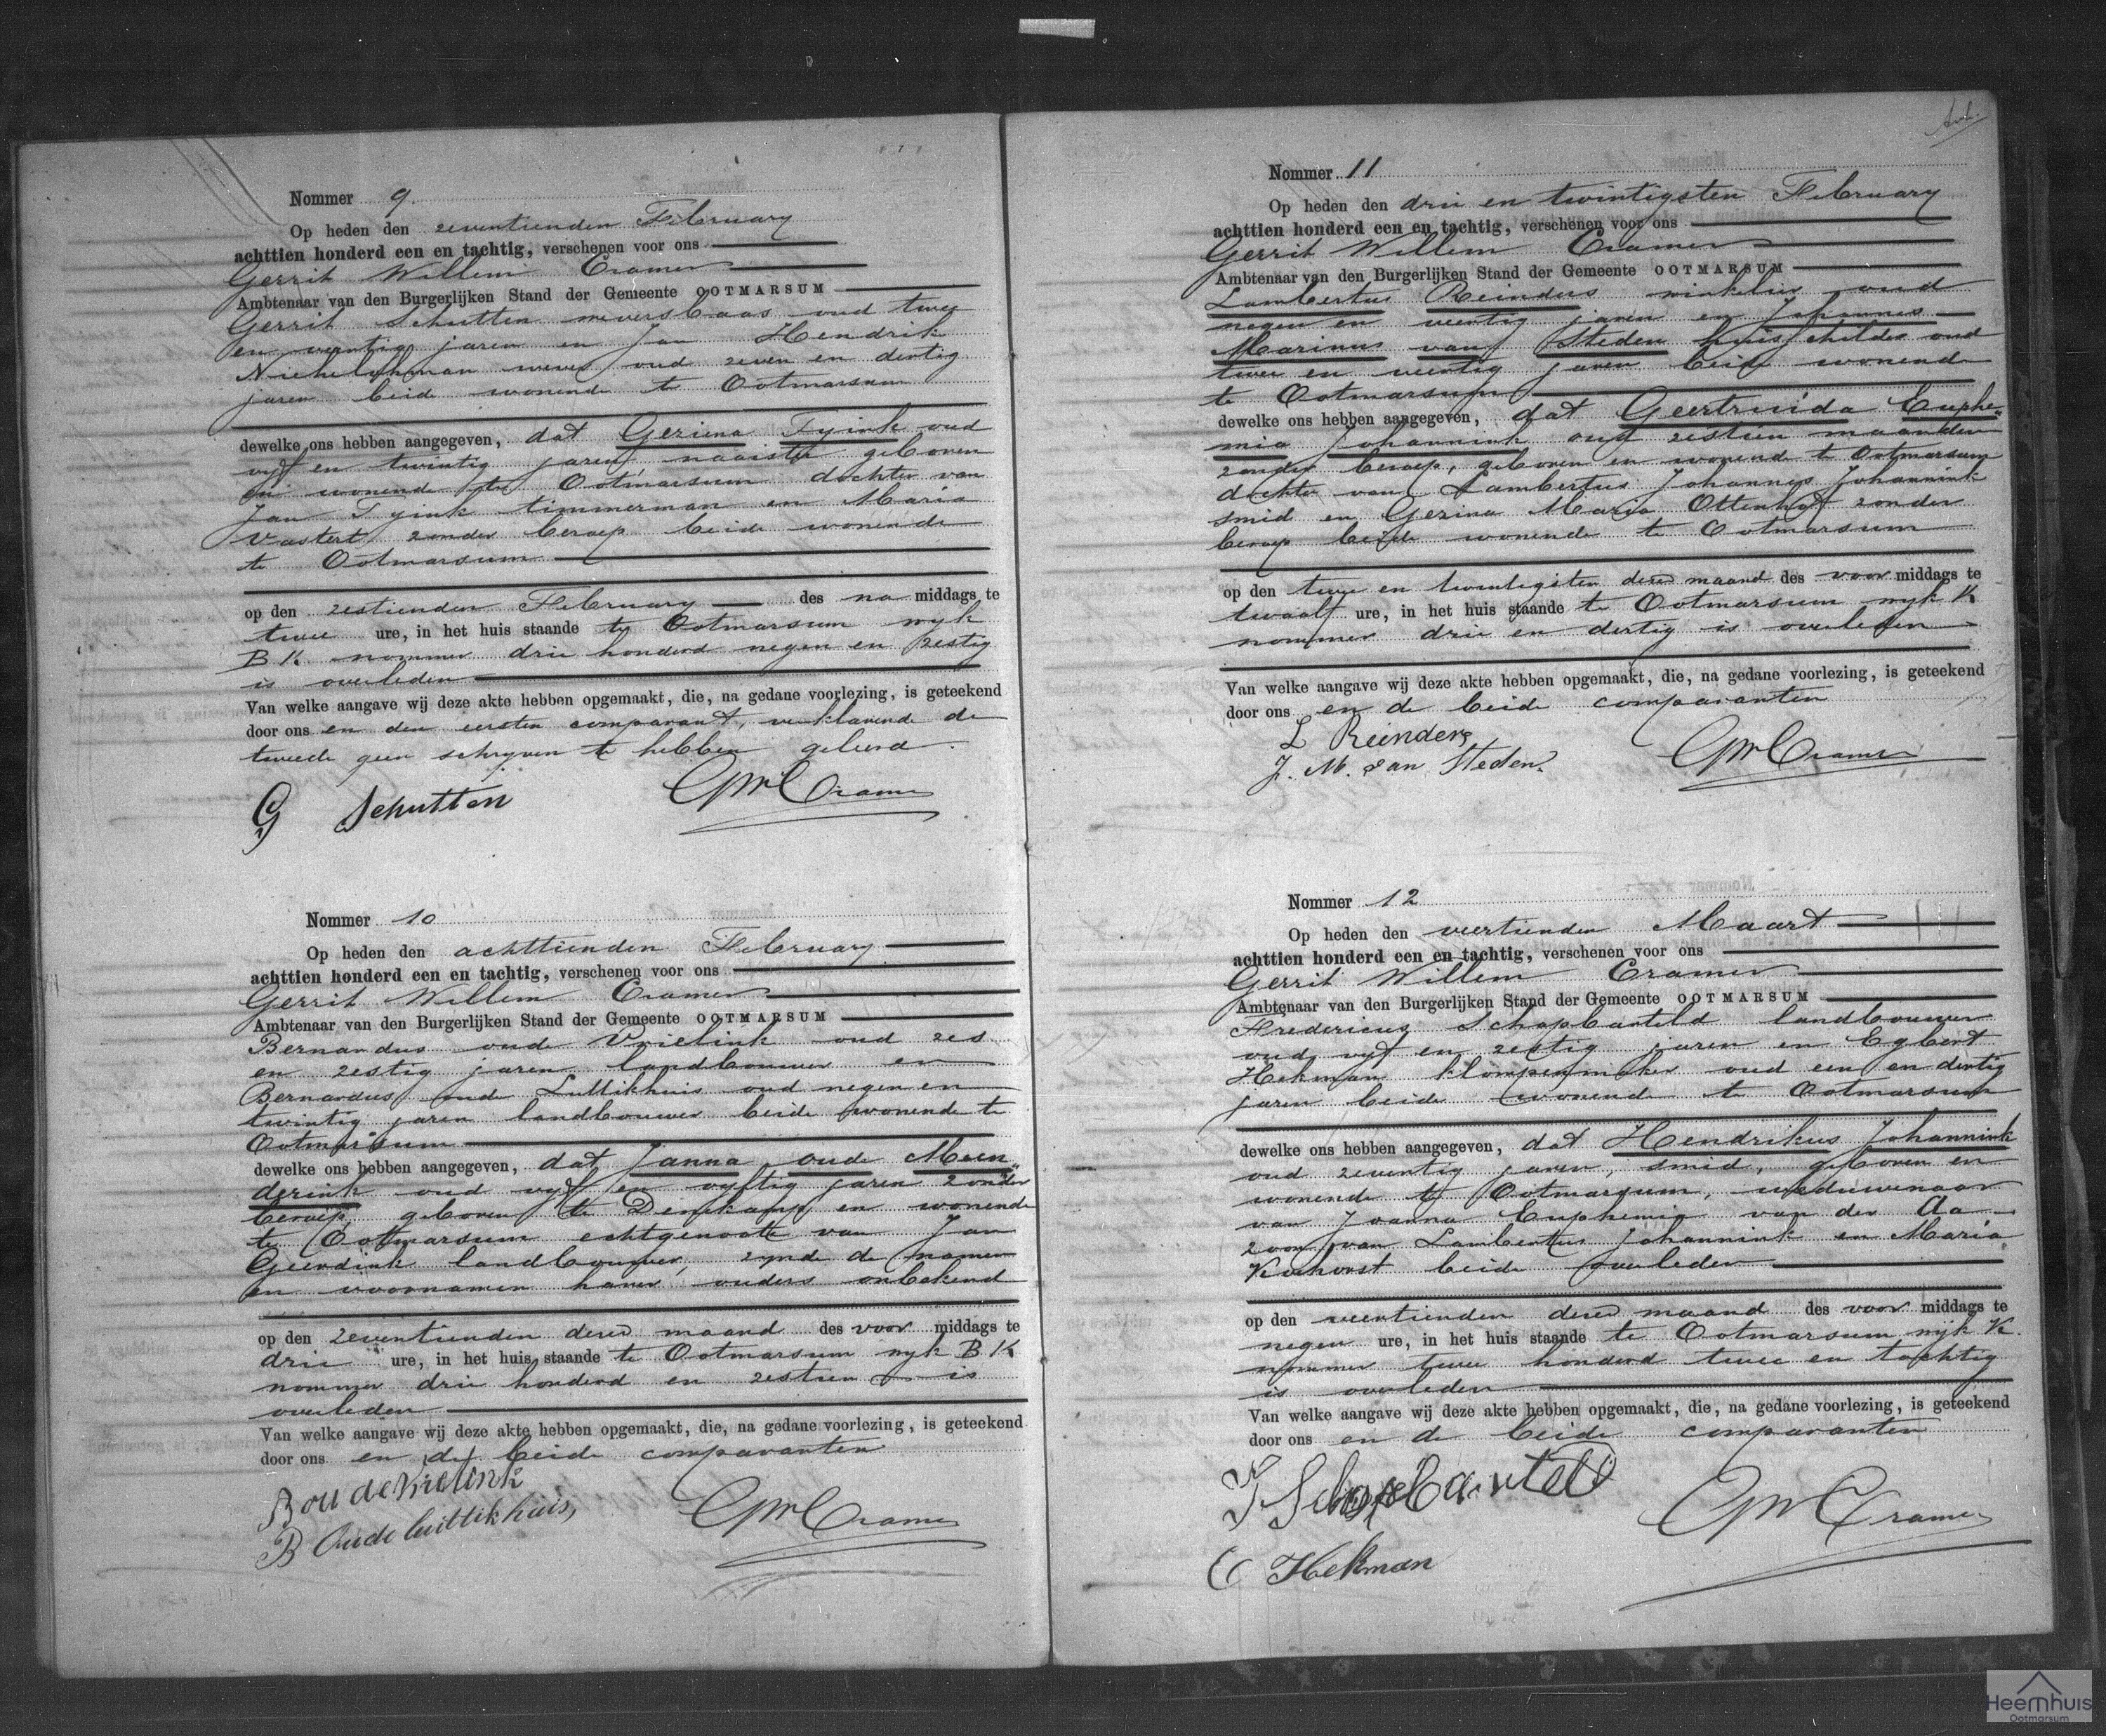 Nommer 9.
Op heden den zeventienden February
achttien honderd een en tachtig, verschenen voor ons
Gerrit Willem Cramer
Ambtenaar van den Burgerlijken Stand der Gemeente OOTMARSUM
Gerrit Schutten weversbaas oud twee
en veertig jaren en Jan Hendrik
wever oud zeven en dertig
jaren beide wonende te Ootmarsum
dewelke ons hebben aangegeven, dat Gezina Tyink oud
vyf en twintig jaren naaister geboren
en wonende te Ootmarsum dochter van
Jan Tyink timmerman en Maria
Vastert zonder beroep beide wonende
te Ootmarsum
op den zestienden February des na middags te
twee ure, in het huis staande te Ootmarsum wyk
B K nommer drie honderd negen en zestig
is overleden
Van welke aangave wij deze akte hebben opgemaakt, die, na gedane voorlezing, is geteekend
door ons en den eersten comparant, verklarende de
tweede geen schryven te hebben geleerd.
G Schutten GWCramer
Nommer 10
Op heden den achttienden February
achttien honderd een en tachtig, verschenen voor ons
Gerrit Willem Cramer
Ambtenaar van den Burgerlijken Stand der Gemeente OOTMARSUM
Bernardus oude Vrielink oud zes
en zestig jaren landbouwer en
Bernardus oude Luttikhuis oud negen en
twintig jaren landbouwer beide wonende te
Ootmarsum
dewelke ons hebben aangegeven, dat Janna oude Meen„
derink oud vyf en vyftig jaren zonder
beroep, geboren te Denekamp en wonende
te Ootmarsum echtgenoote van Jan
Geerdink landbouwer, zynde de namen
en voornamen harer ouders onbekend
op den zeventienden dezer maand des voor middags te
drie ure, in het huis staande te Ootmarsum wyk B K
nommer drie honderd en zestien is
overleden
Van welke aangave wij deze akte hebben opgemaakt, die, na gedane voorlezing, is geteekend
door ons en de beide comparanten
B oude Vrielink
B Oude luttikhuis, GWCramer
Nommer 11
Op heden den drie en twintigsten February
achttien honderd een en tachtig, verschenen voor ons
Gerrit Willem Cramer
Ambtenaar van den Burgerlijken Stand der Gemeente OOTMARSUM
Lambertus Reinders winkelier oud
negen en veertig jaren en Johannes
Marinus van Steden huisschilder oud
twee en veertig jaren beide wonende
te Ootmarsum
dewelke ons hebben aangegeven, dat Geertruida Euphe„
mia Johannink oud zestien maanden
zonder beroep, geboren en wonende te Ootmarsum
dochter van Lambertus Johannes Johannink
smid en Gezina Maria Ottenhof zonder
beroep beide wonende te Ootmarsum
op den twee en twintigsten dezer maand des voor middags te
twaalf ure, in het huis staande te Ootmarsum wyk K
nommer drie en dertig is overleden
Van welke aangave wij deze akte hebben opgemaakt, die, na gedane voorlezing, is geteekend
door ons en de beide comparanten
L Reinders
J. M. van Steden. GWCramer
Nommer 12
Op heden den veertienden Maart
achttien honderd een en tachtig, verschenen voor ons
Gerrit Willem Cramer
Ambtenaar van den Burgerlijken Stand der Gemeente OOTMARSUM
Fredericus Schopbarteld landbouwer
oud vyf en zestig jaren en Egbert
Hekman klompenmaker oud een en dertig
jaren beide wonende te Ootmarsum
dewelke ons hebben aangegeven, dat Hendrikus Johannink
oud zeventig jaren, smid, geboren en
wonende te Ootmarsum, weduwenaar
van Joanna Euphemia van der Aa
zoon van Lambertus Johannink en Maria
Kuhorst beide overleden
op den veertienden dezer maand des voor middags te
negen ure, in het huis staande te Ootmarsum wyk K.
nommer twee honderd twee en tachtig
is overleden
Van welke aangave wij deze akte hebben opgemaakt, die, na gedane voorlezing, is geteekend
door ons en de beide comparanten
F Schopbarteld
E Hekman GWCramer
Heemhuis
Ootmarsum